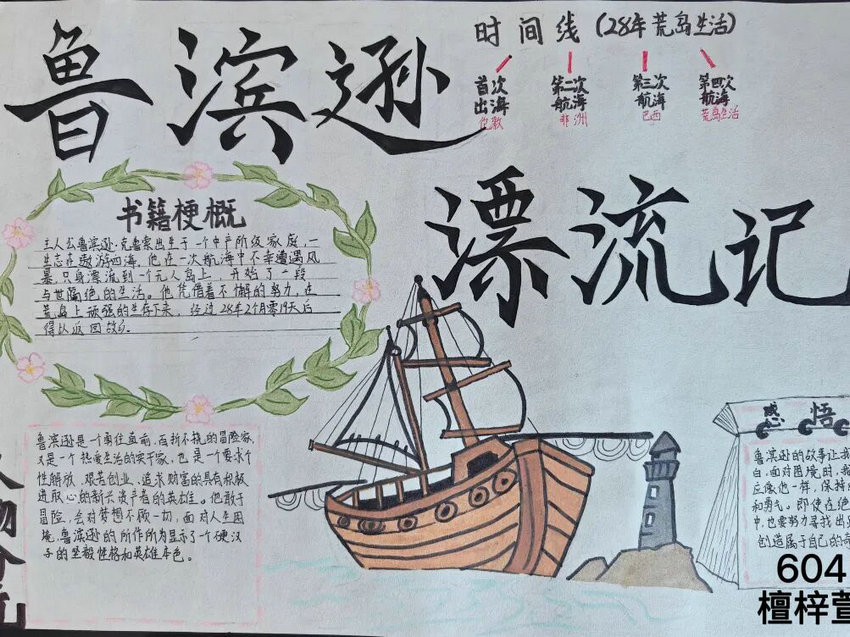 鲁滨逊
漂流记
时间线(28年荒岛生活)
首次
出海
伦敦
第二次
航海
非洲
第三次
航海
巴西
第四次
航海
荒岛生活
书籍梗概
主人公鲁滨逊·克鲁索出生于一个中产阶级家庭,一
生志在遨游四海,他在一次航海中不幸遭遇风
暴,只身漂流到一个无人岛上,开始了一段
与世隔绝的生活。他凭借着不懈的努力,在
荒岛上顽强的生存下来,经过28年2个月零19天后
得以返回故乡。
鲁滨逊是一个勇往直前,百折不挠的冒险家,
又是一个热爱生活的实干家,也是一个要求个
性解放、艰苦创业、追求财富的具有积极
进取心的新兴资产者的英雄。他敢于
冒险,会对梦想不顾一切,面对人生困
境,鲁滨逊的所作所为显示了一个硬汉
子的坚毅性格和英雄本色。
感悟
鲁滨逊的故事让我
白,面对困境时,我
应像他一样,保持
和勇气。即使在绝
中,也要努力寻找出
创造属于自己的奇
604
檀梓萱